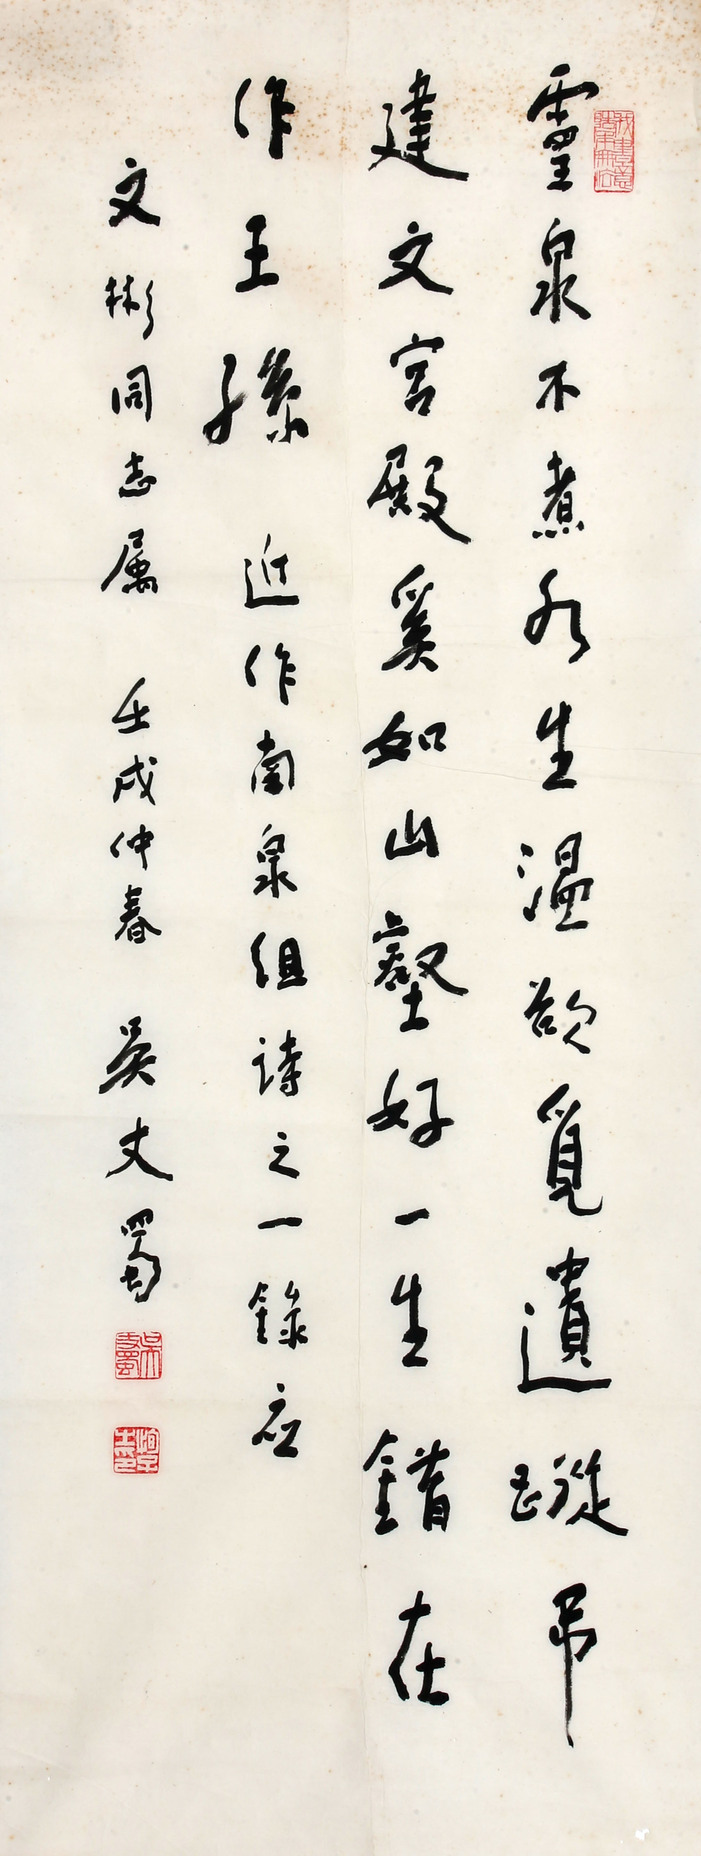 靈泉不煮水生溫欲覓遺蹤弔
建文宮殿奚如山壑好一生錯在
作王孫 近作南泉组詩之一錄应
文彬同志属 壬戌仲春 吴丈蜀